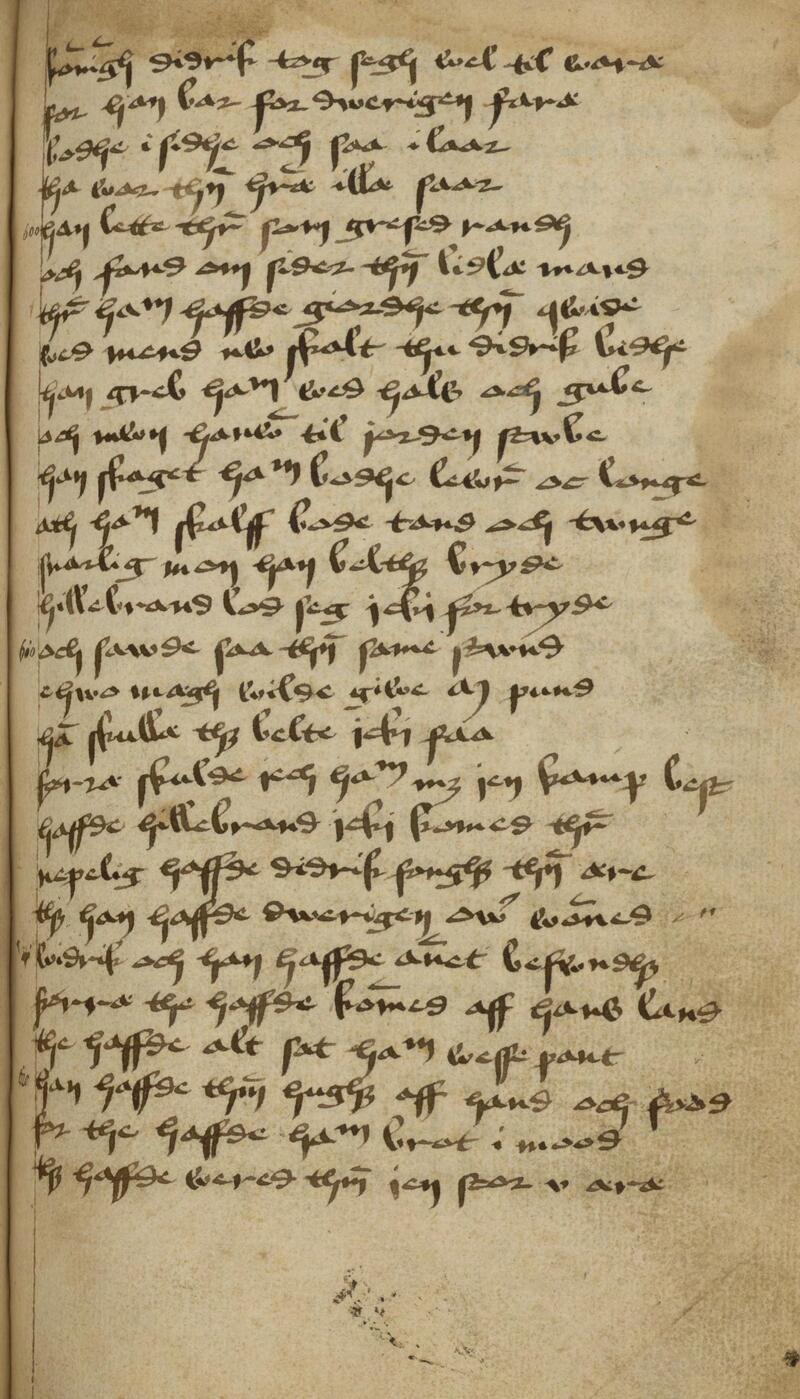 konīgh didrik tog segh wel til wara
for han bar for dwerigen fara
bodhe i sidhe och saa i laar
tha war thn̄ hr̄æ illæ saar
han lette thr̄ som gresed randh
och fand om sider thn̄ lislæ mand
thr̄ ham haffde giordhe thn̄ qwide
wed mend nw skalt thu didrik bidhe
han greb ham wed hals och gube
och mwn hanw̄ til jorden stwbe
han skaget ham bodhe lewr̄ oc longe
ath ham skalff bode tand och twnge
snarlig mon han belthet bryde
hillebrand lod seg icki fortryde
och sawde saa thn̄ same stwnd
ehwo magh wilde giwe xv pund
hā skullæ thet belte icki faa
førræ skulde iech ham met ien kamp best
haffde hillebrand icki komed thr̄
nepelig haffde didrik fonghet thn̄ ære
thet han haffde dwerigen ow̄ woned
widrik och han haffde an̄et befwndhet
førræ the haffde kom̄ed aff hans land
the haffde alt sat ham wesse pant
han haffde thm̄ hughet aff hand och food
for the haffde ham brot i mood
thet haffde wered thm̄ ien stor v ara